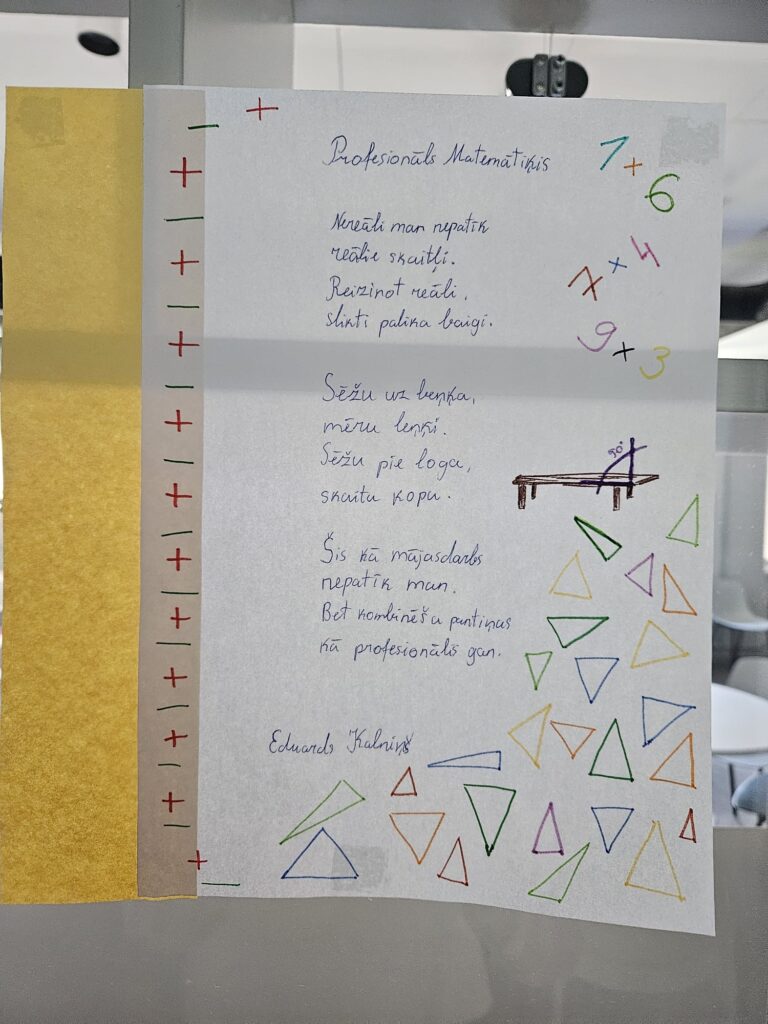 Profesionāls Matemātiķis
1 + 6
Nereāli man nepatīk
reālie skaitļi.
Reizinot reāli,
slikti palika baigi.
7 × 4
9 + 3
Sēžu uz beņķa,
mēru leņķi.
Sēžu pie loga,
skaitu kopu.
90°
Šis kā mājasdarbs
nepatīk man.
Bet kombinēšu pantiņus
kā profesionālis gan.
Eduards Kalniņš